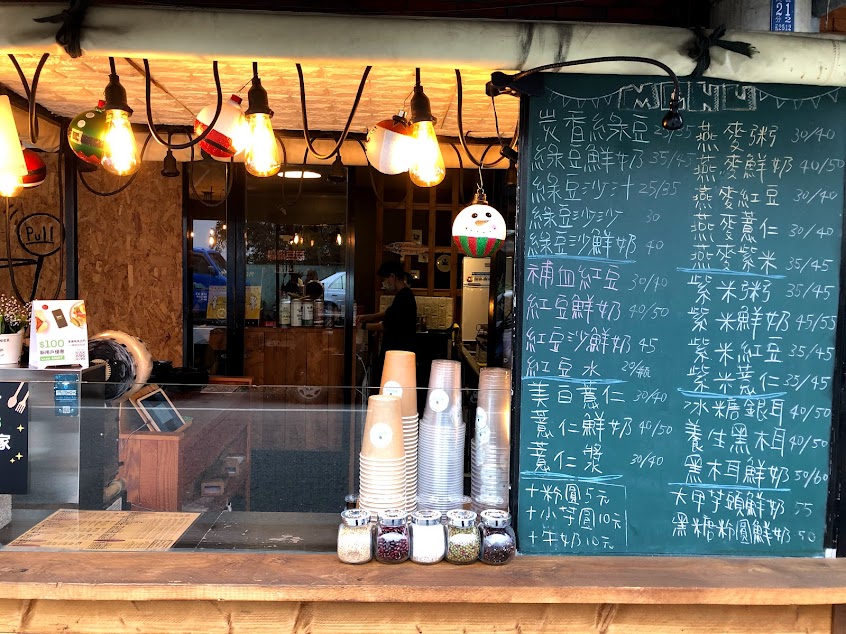 MENU
炭香綠豆 25/35
綠豆鮮奶 35/45
綠豆沙沙汁 25/35
綠豆沙沙 30
綠豆沙鮮奶 40
補血紅豆 30/40
紅豆鮮奶 40/50
紅豆沙鮮奶 45
紅豆水 29/瓶
美白薏仁 30/40
薏仁鮮奶 40/50
薏仁漿 30/40
+粉圓5元
+小芋圓10元
+牛奶10元
燕麥粥 30/40
燕麥鮮奶 40/50
燕麥紅豆 30/40
燕麥薏仁 30/40
燕麥紫米 35/45
紫米粥 35/45
紫米鮮奶 45/55
紫米紅豆 35/45
紫米薏仁 35/45
冰糖銀耳 40/50
養生黑木耳 40/50
黑木耳鮮奶 50/60
大甲芋頭鮮奶 55
黑糖粉圓鮮奶 50
Pull
$100
家